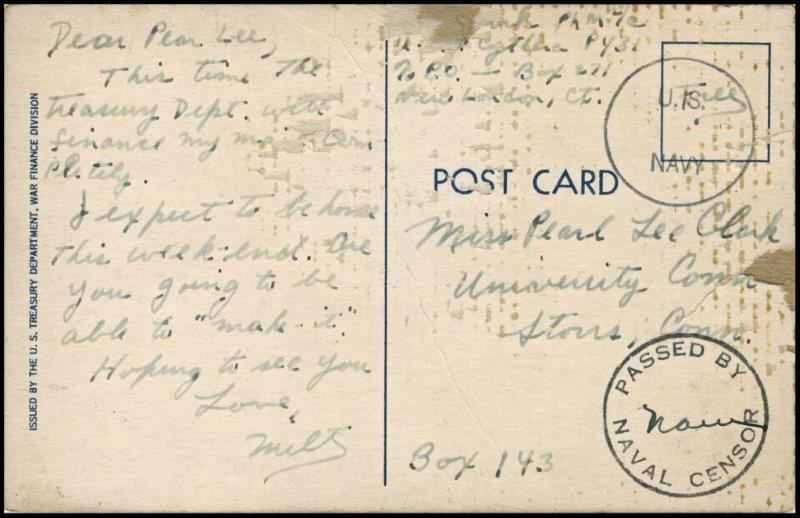 Dear Pear Lee,
This time the
Treasury Dept. will
finance my mail com-
pletely.
I expect to be home
this week-end. Are
you going to be
able to "make it".
Hoping to see you
Love,
Milt
ISSUED BY THE U. S. TREASURY DEPARTMENT, WAR FINANCE DIVISION
PhM 1/c
Cythera PY31
% P.O. — Box 271
New London, Ct.
Free
U.S.
NAVY
POST CARD
Miss Pearl Lee Clark
University Conn
Storrs, Conn.
Box 143
PASSED BY
NAVAL CENSOR